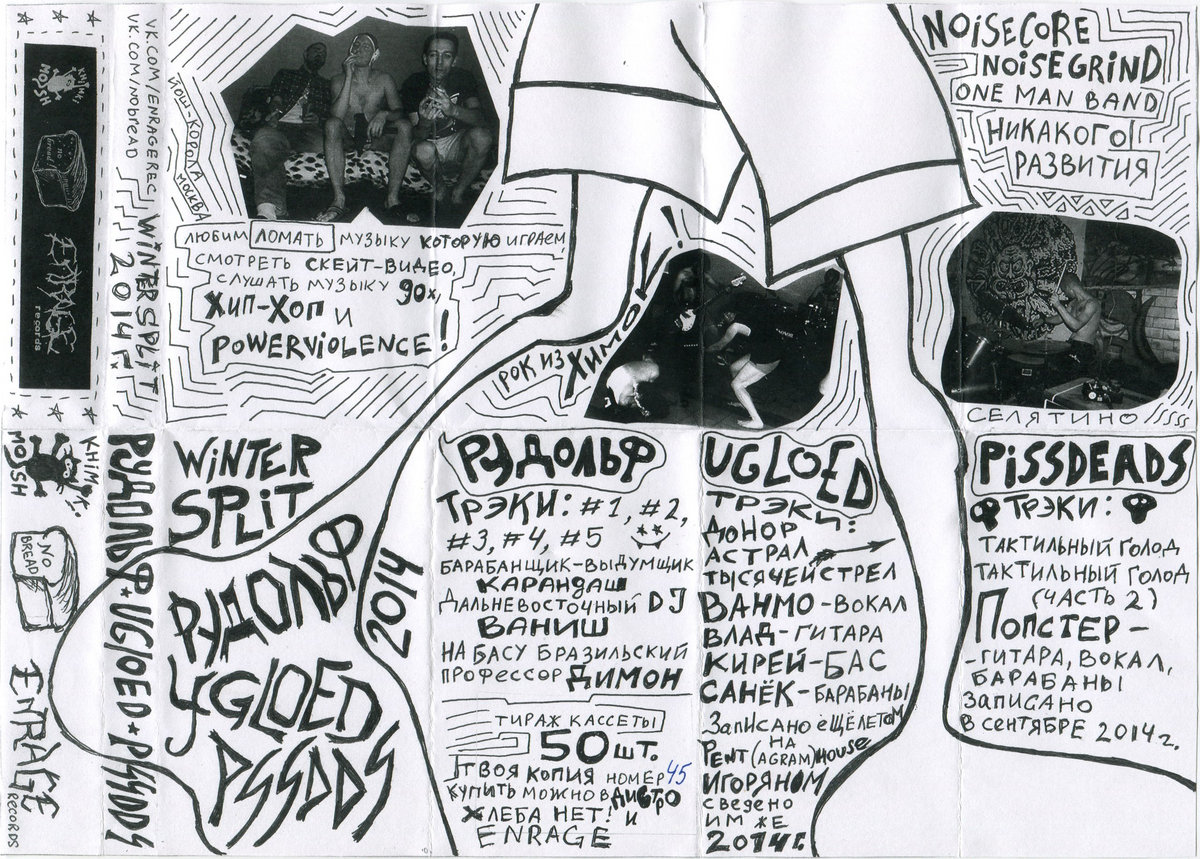 KHIMKI
MOSH
no
bread
ENRAGE
records
VK.COM/ENRAGEREC
VK.COM/NOBREAD
WINTER SPLIT
2014 Г.
ЙОШ-КОРОЛА
МОСКВА
ЛЮБИМ ЛОМАТЬ МУЗЫКУ КОТОРУЮ ИГРАЕМ,
СМОТРЕТЬ СКЕЙТ-ВИДЕО,
СЛУШАТЬ МУЗЫКУ 90х,
ХИП-ХОП И
POWERVIOLENCE!
РОК ИЗ ХИМОК!
NOISECORE
NOISEGRIND
ONE MAN BAND
НИКАКОГО
РАЗВИТИЯ
СЕЛЯТИНО
KHIMKI
MOSH
NO
BREAD
ENRAGE
RECORDS
РУДОЛЬФ ★ UGLOED ★ PSSDDS
WINTER
SPLIT
РУДОЛЬФ
UGLOED
PSSDDS
2014
РУДОЛЬФ
ТРЭКИ: #1, #2,
#3, #4, #5
БАРАБАНЩИК-ВЫДУМЩИК
КАРАНДАШ
ДАЛЬНЕВОСТОЧНЫЙ DJ
ВАНИШ
НА БАСУ БРАЗИЛЬСКИЙ
ПРОФЕССОР ДИМОН
ТИРАЖ КАССЕТЫ
50 ШТ.
ТВОЯ КОПИЯ НОМЕР 45
КУПИТЬ МОЖНО В ДИСТРО
ХЛЕБА НЕТ! И
ENRAGE
UGLOED
ТРЭКИ:
ДОНОР
АСТРАЛ
ТЫСЯЧЕЙ СТРЕЛ
ВАНМО - ВОКАЛ
ВЛАД - ГИТАРА
КИРЕЙ - БАС
САНЁК - БАРАБАНЫ
Записано ещё летом
НА
PENT(AGRAM)HOUSE
ИГОРЯНОМ
сведено
им же
2014г.
PISSDEADS
ТРЭКИ:
ТАКТИЛЬНЫЙ ГОЛОД
ТАКТИЛЬНЫЙ ГОЛОД
(ЧАСТЬ 2)
ПОПСТЕР -
- ГИТАРА, ВОКАЛ,
БАРАБАНЫ
Записано
В СЕНТЯБРЕ 2014г.